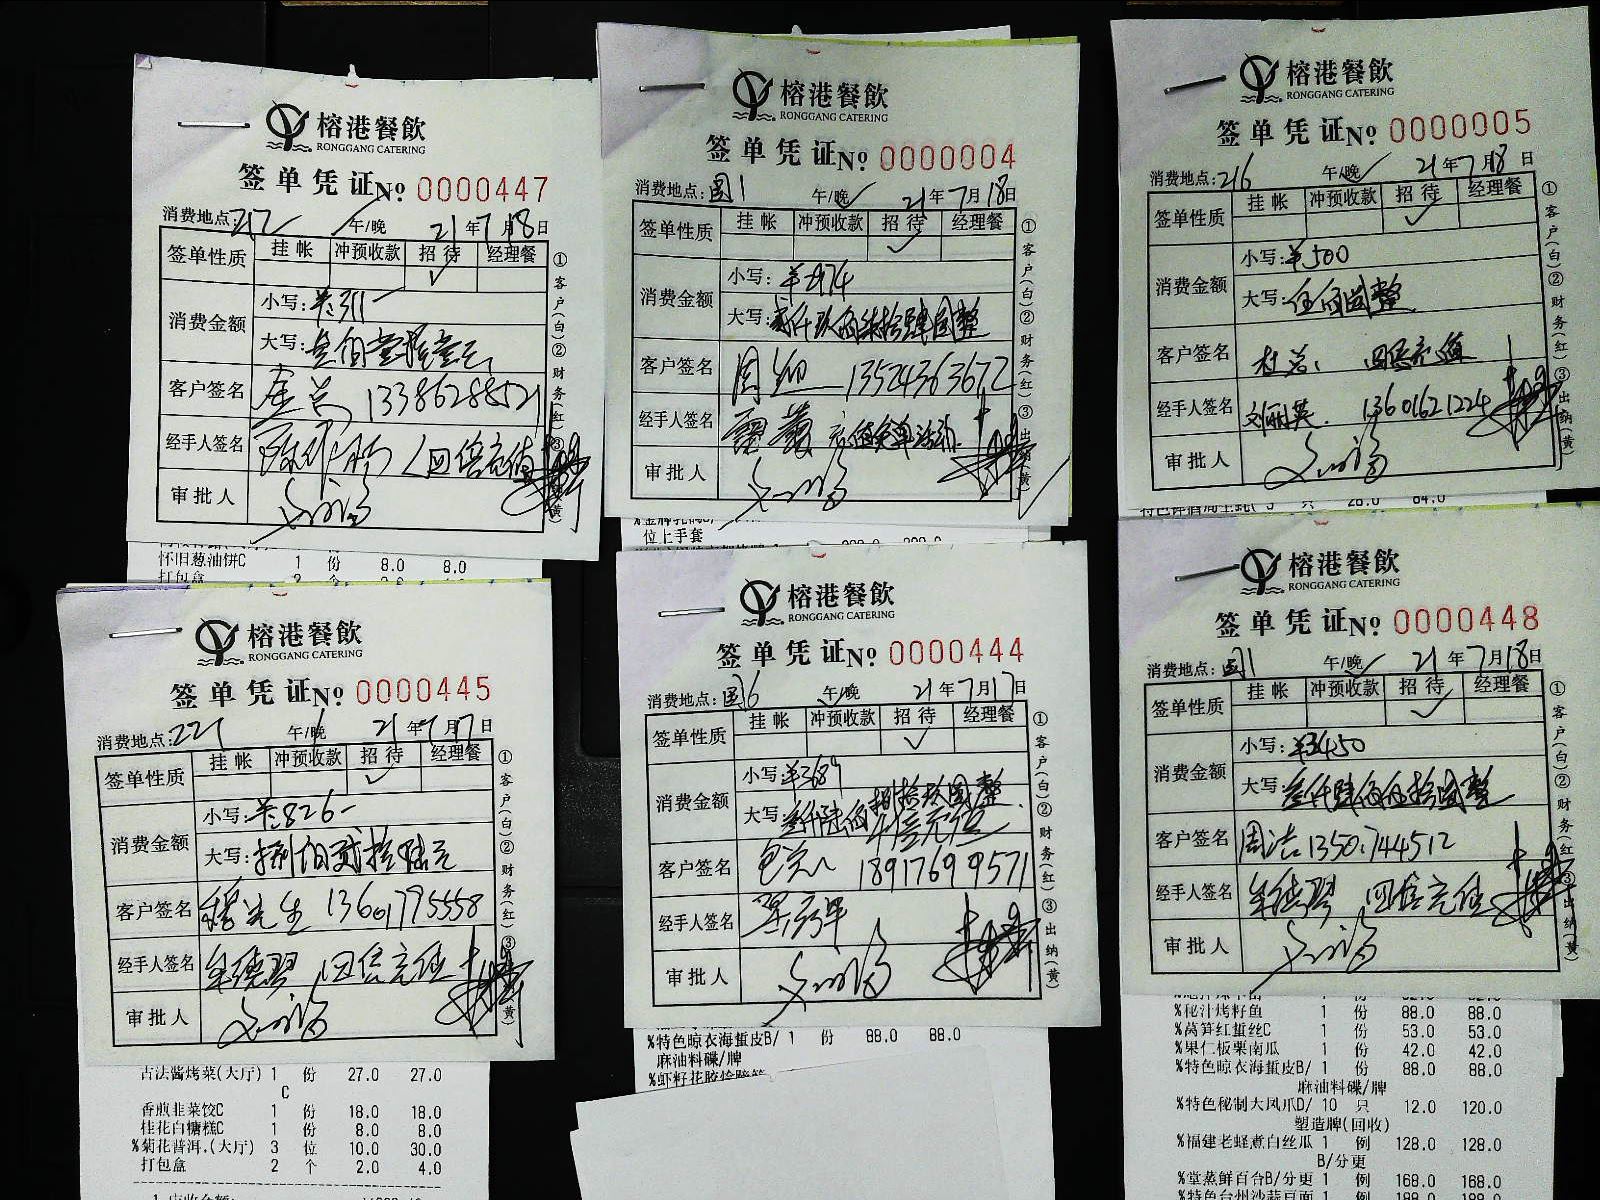 榕港餐飲
RONGGANG CATERING
签单凭证 № 0000447
消费地点: 217 午/晚 21年7月18日
签单性质 挂帐 冲预收款 招待 经理餐
✓
消费金额 小写: ¥:311-
大写: 叁佰壹拾壹元
客户签名 13386288521
经手人签名 四倍充值
审批人
①客户(白)②财务(红)③出纳(黄)
怀旧葱油饼C 1 份 8.0 8.0
打包盒
榕港餐飲
RONGGANG CATERING
签单凭证 № 0000004
消费地点: 国1 午/晚✓ 21年7月18日
签单性质 挂帐 冲预收款 招待 经理餐
✓
消费金额 小写: ¥2974
大写: 贰仟玖佰柒拾肆圆整
客户签名 13524363672
经手人签名 充值免单活动
审批人
①客户(白)②财务(红)③出纳(黄)
位上手套
榕港餐飲
RONGGANG CATERING
签单凭证 № 0000005
消费地点: 216 午/晚✓ 21年7月18日
签单性质 挂帐 冲预收款 招待 经理餐
✓
消费金额 小写: ¥500
大写: 伍佰圆整
客户签名 杜总 四倍充值
经手人签名 刘丽英 13601621224
审批人
①客户(白)②财务(红)③出纳(黄)
28.0 84.0
榕港餐飲
RONGGANG CATERING
签单凭证 № 0000445
消费地点: 221 午/晚 21年7月17日
签单性质 挂帐 冲预收款 招待 经理餐
✓
消费金额 小写: ¥:826-
大写: 捌佰贰拾陆元
客户签名 穆先生 13601795558
经手人签名 牟德翠 四倍充值
审批人
①客户(白)②财务(红)③出纳(黄)
古法酱烤菜(大厅) 1 份 27.0 27.0
C
香煎韭菜饺C 1 份 18.0 18.0
桂花白糖糕C 1 份 8.0 8.0
%菊花普洱.(大厅) 3 位 10.0 30.0
打包盒 2 个 2.0 4.0
榕港餐飲
RONGGANG CATERING
签单凭证 № 0000444
消费地点: 国6 午/晚 21年7月17日
签单性质 挂帐 冲预收款 招待 经理餐
✓
消费金额 小写: ¥3689
大写: 叁仟陆佰捌拾玖圆整
4倍充值
客户签名 18917699571
经手人签名
审批人
①客户(白)②财务(红)③出纳(黄)
%特色晾衣海蜇皮B/ 1 份 88.0 88.0
麻油料碟/牌
榕港餐飲
RONGGANG CATERING
签单凭证 № 0000448
消费地点: 国1 午/晚✓ 21年7月18日
签单性质 挂帐 冲预收款 招待 经理餐
✓
消费金额 小写: ¥3450
大写: 叁仟肆佰伍拾圆整
客户签名 周洁 13501744512
经手人签名 牟德翠 四倍充值
审批人
①客户(白)②财务(红)③出纳(黄)
%秘汁烤籽鱼 1 份 88.0 88.0
%莴笋红蜇丝C 1 份 53.0 53.0
%果仁板栗南瓜 1 份 42.0 42.0
%特色晾衣海蜇皮B/ 1 份 88.0 88.0
麻油料碟/牌
%特色秘制大凤爪D/ 10 只 12.0 120.0
塑造牌(回收)
%福建老蛏煮白丝瓜 1 例 128.0 128.0
B/分更
%堂蒸鲜百合B/分更 1 例 168.0 168.0
%特色台州沙蒜豆面 1 例 188.0 188.0